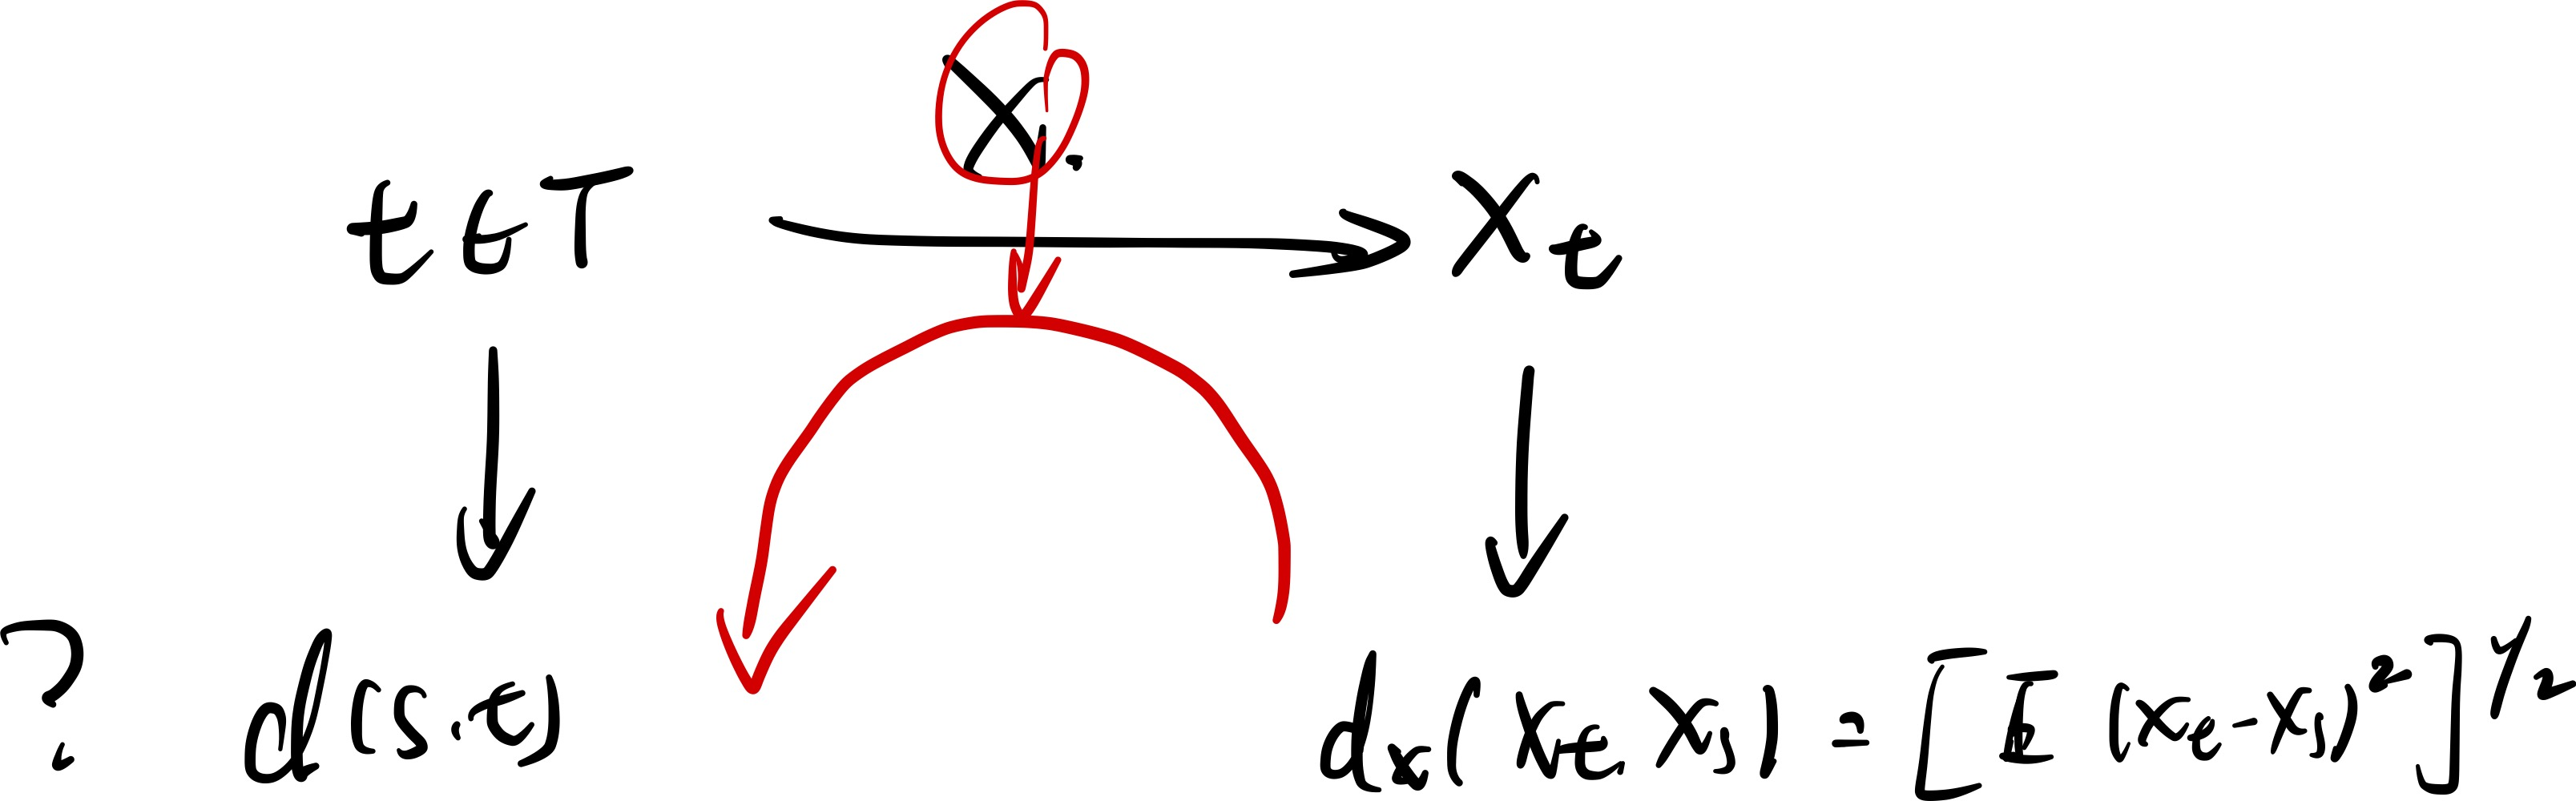 X.
t ∈ T X_t
? d(s,t) d_X(X_t, X_s) = [E (X_t - X_s)^2]^{1/2}